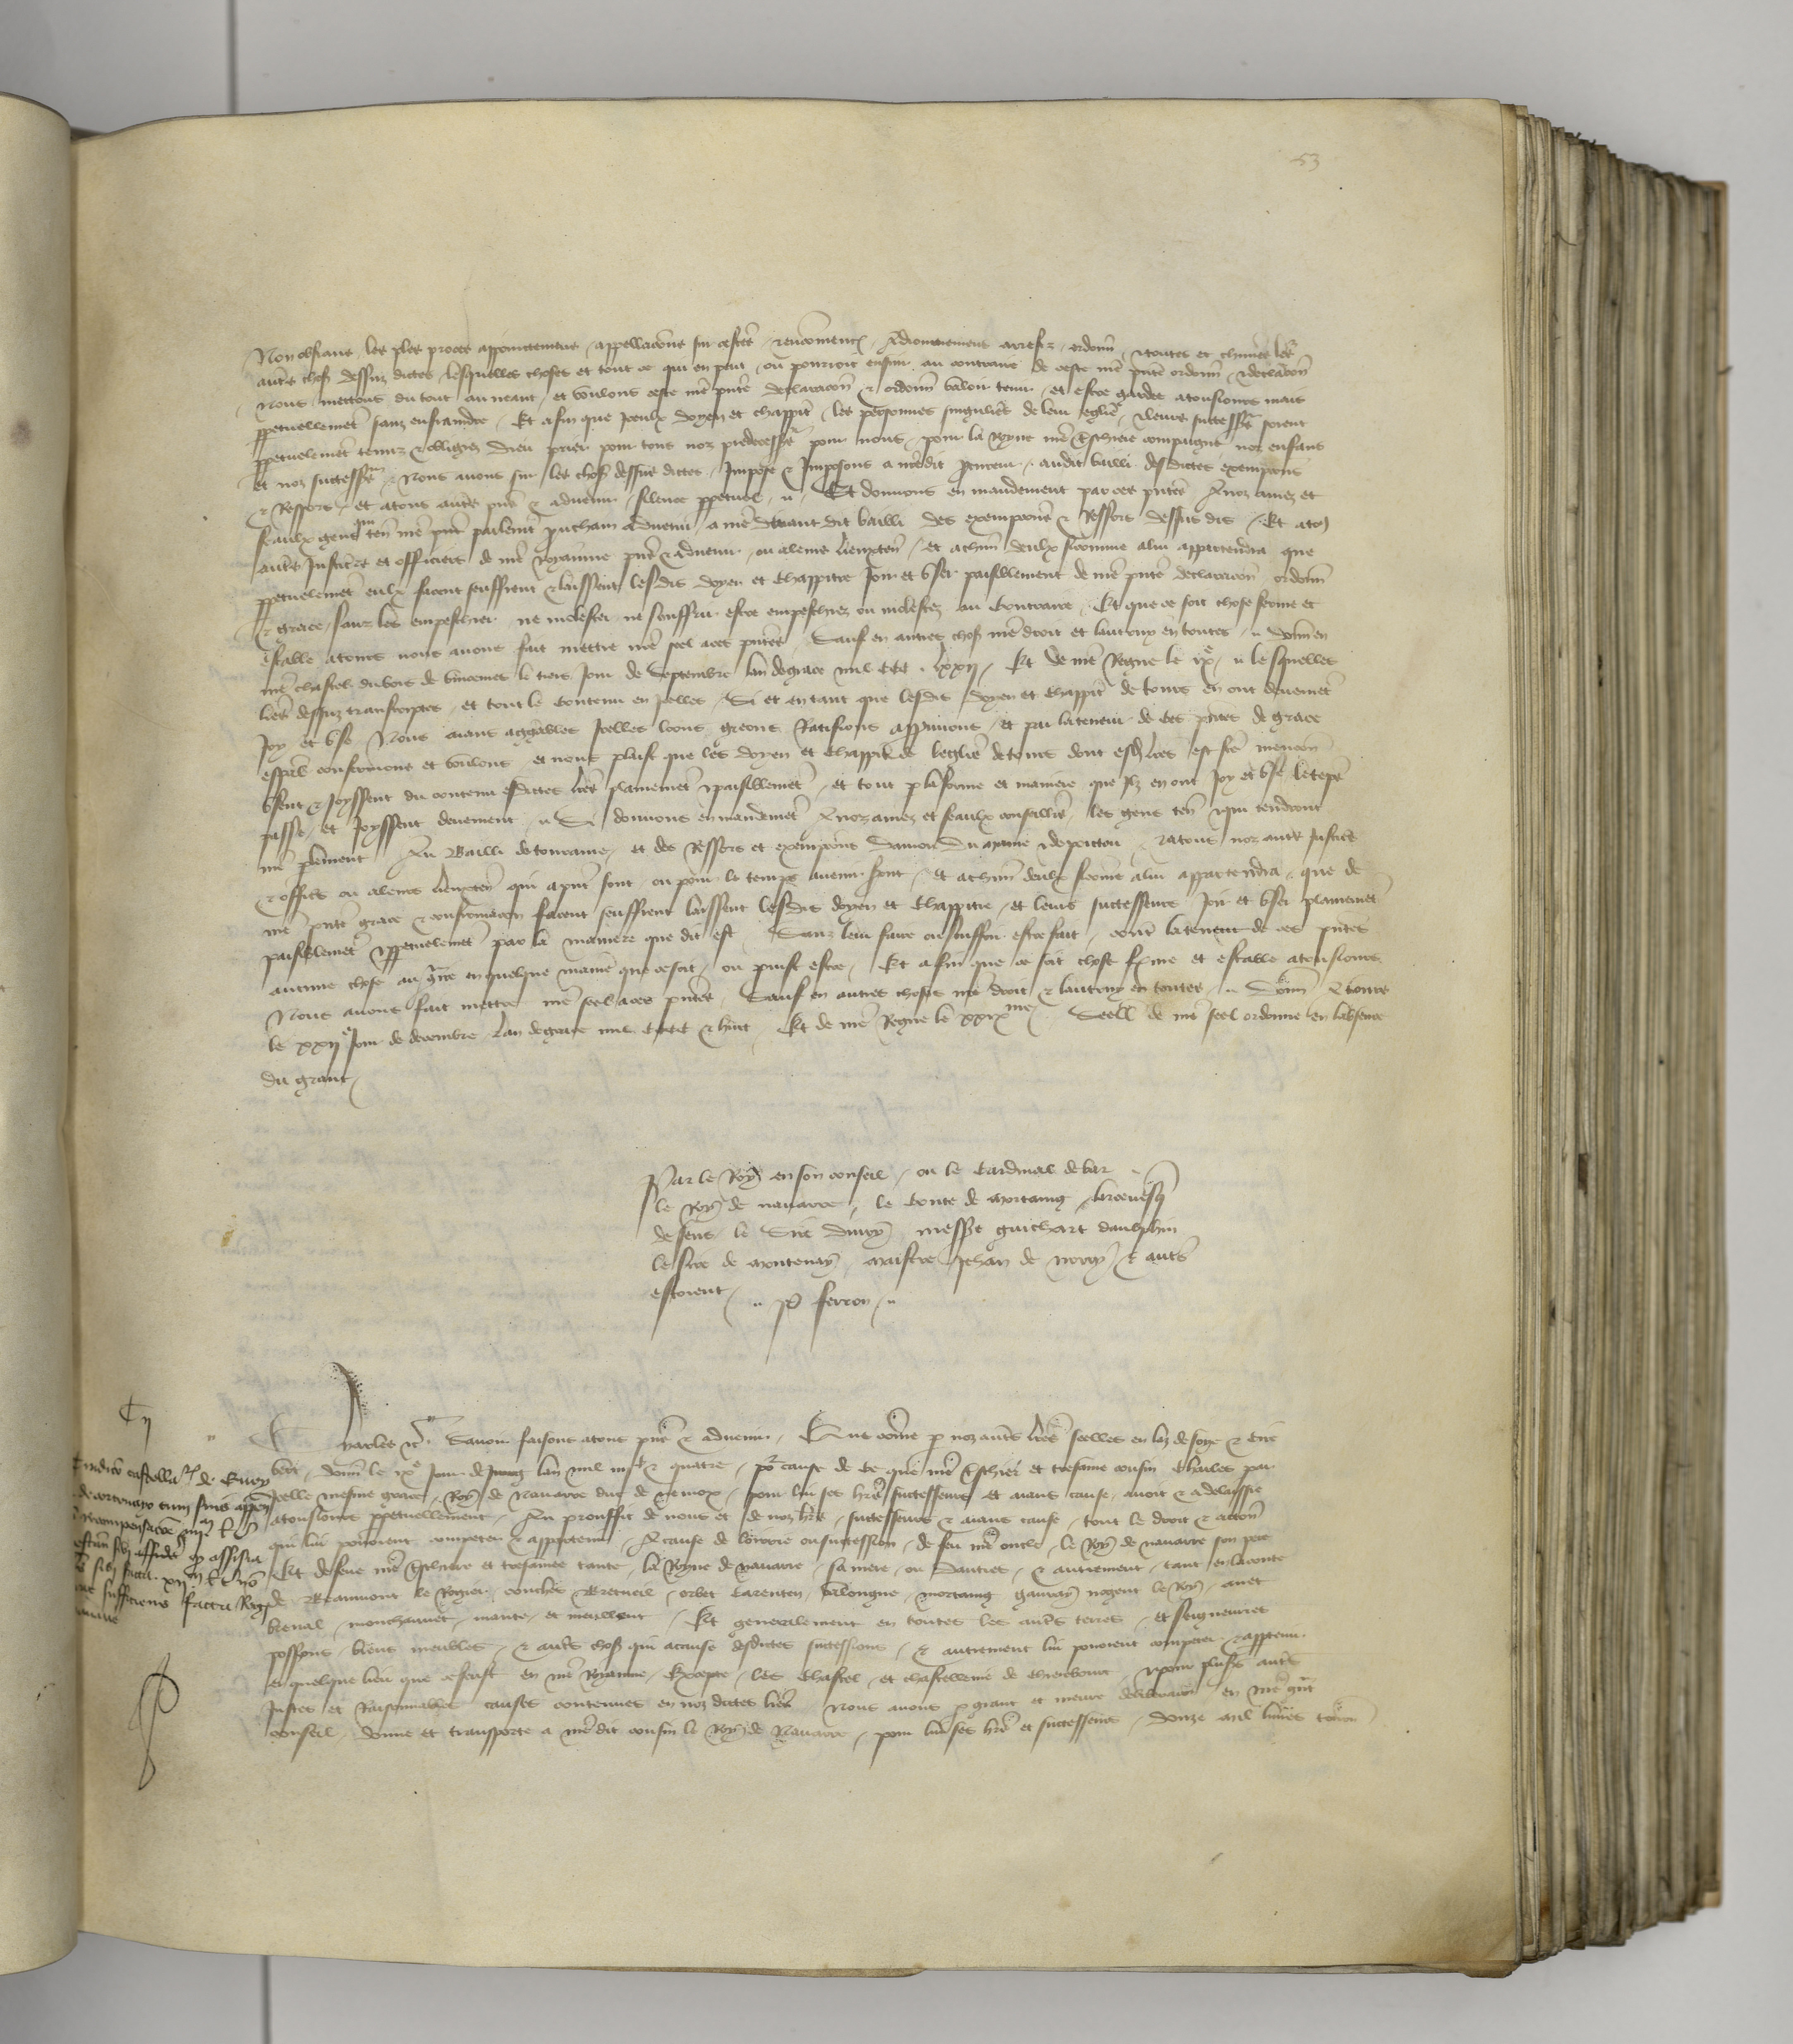 53
Non obstans les ples proces appointemens appellacions sur cestes Adiornemens arrestz ordonn toutes et chunes les
autres choses dessus dictes lesquelles choses et tout ce qui en puet ou pourroit ensuir au contraire de ceste nre pnte ordonn declaracion
Nous mettons du tout au neant et voulons ceste nre pnte declaracion & ordonn valoir tenir et estre gardee a tousiours mais
ppetuellement sanz enfraindre Et afin que iceulx doyen et chappitre les personnes singulieres de leur eglise & leurs successrs soient
ppetuelment tenuz & obligez Dieu prier pour tous noz predecessrs pour nous pour la Royne nre treschiere compaigne noz enfans
et noz successrs Nous avons sur les choses dessus dictes Impose & Imposons a nredit procureur audit bailli desdictes exempcions
& Ressors et a tous autres pns & advenir silence ppetuel Et donnons en mandement par ces pntes A noz amez et
feaulx gens qui ten nre pnt parlement prochain advenir a nre devant dit bailli des exempcions & Ressors dessus dis Et a tous
autres Justiciers et officiers de nre royaume pns & advenir ou a leurs lieuxten et a chun deulx si comme a lui appartendra que
ppetuelment eulx facent seuffrent & laissent lesdis doyen et chappitre Joir et user paisiblement de nre pnte declaracion ordonn
& grace sanz les empeschier ne molester ne souffrir estre empeschiez ou molestez au contraire Et que ce soit chose ferme et
estable a tousiours nous avons fait mettre nre seel a ces pntes Sauf en autres choses nre droit et lautruy en toutes Donn en
nre chastel du bois de Vincennes le tiers Jour de Septembre lan de grace mil ccc lxxii Et de nre Regne le ixe lesquelles
lres dessus transcriptes et tout le contenu en ycelles Si et en tant que lesdis doyen et chappitre de Tours en ont deuement
Joy et use Nous aians aggreables ycelles loons greons Ratifions approuvons et par la teneur de ces pntes de grace
especial confermons et voulons et nous plaist que les doyen et chappitre de leglise de Tours dont esd lres est fte mencion
usent & Joyssent du contenu esdictes lres plainement & paisiblement et tout p la forme et maniere que Ilz en ont Joy et use le temps
passe et Joyssent deuement Si donnons en mandement A noz amez et feaulx conseilliers les gens ten & qui tendront
nre plement Au Bailli de Touraine et des Ressors et exempcions Danjou du Maine & de Poictou & a tous noz autres Justic
& offics ou a leurs lieuxten qui a pnt sont ou pour le temps avenir seront et a chun deulx si come a lui appartendra que de
nre pnte grace & confirmacion facent seuffrent laissent lesdis doyen et chappitre et leurs successeurs Joir et user plainement
paisiblement & ppetuelment par la maniere que dit est Sanz leur faire ou souffrir estre fait contre la teneur de ces pntes
aucune chose au contre en quelque maniere que ce soit ou puist estre Et afin que ce soit chose ferme et estable a tousiours
Nous avons fait mettre nre seel a ces pntes Sauf en autres choses nre droit & lautruy en toutes Donn A Tours
le xxiie Jour de decembre lan de grace mil cccc & huit Et de nre Regne le xxixme Seelle de nre seel ordonne en labsence
du grant
Par le Roy en son conseil ou le Cardinal de bar
le Roy de navarre le Conte de mortaing larcevesq
de sens le Sire divry messre guichart daulphin
le sire de montenay maistre Jehan de & autres
estoient P Ferron
Charles etc Savoir faisons a tous pns & advenir Que comme p noz autres lres seellees en laz de soye & cire
vert donn le ixe Jour de lan mil iiiic & quatre por cause de ce que nre treschier et tresame cousin Charles par
ycelle mesme grace Roy de Navarre duc de nemox pour lui ses hers successeurs et aians cause avoit & a delaissie
a tousiours ppetuellement Au prouffit de nous et de noz hers successeurs & aians cause tout le droit & accion
qui lui povoient competer & appartenir A cause de loirrie ou succession de feu nre oncle le Roy de navarre son pere
Et de feue nre treschiere et tresamee tante la Royne de navarre sa mere ou dautres & autrement tant en la conte
de Beaumont le Rogier conches Breteuil orbec Carenten Valongne mortaing gavray nogent le Roy anet
breval monchauvet mante et meullent Et generalment en toutes les autres terres et seigneuries
possions biens meubles & autres choses qui a cause desdictes successions & autrement lui povoient competer & apptenir
en quelque lieu que ce feust en nre Royaume Excepte les Chastel et chastellenie de Chierebourc & pour pluss autres
Justes et Raisonnables causes contenues en noz dictes lres Nous avons p grant et meure deliberacion en nre grt
conseil donne et transporte a nredit cousin le Roy de Navarre pour lui ses hers et successeurs Douze mil livres tourn